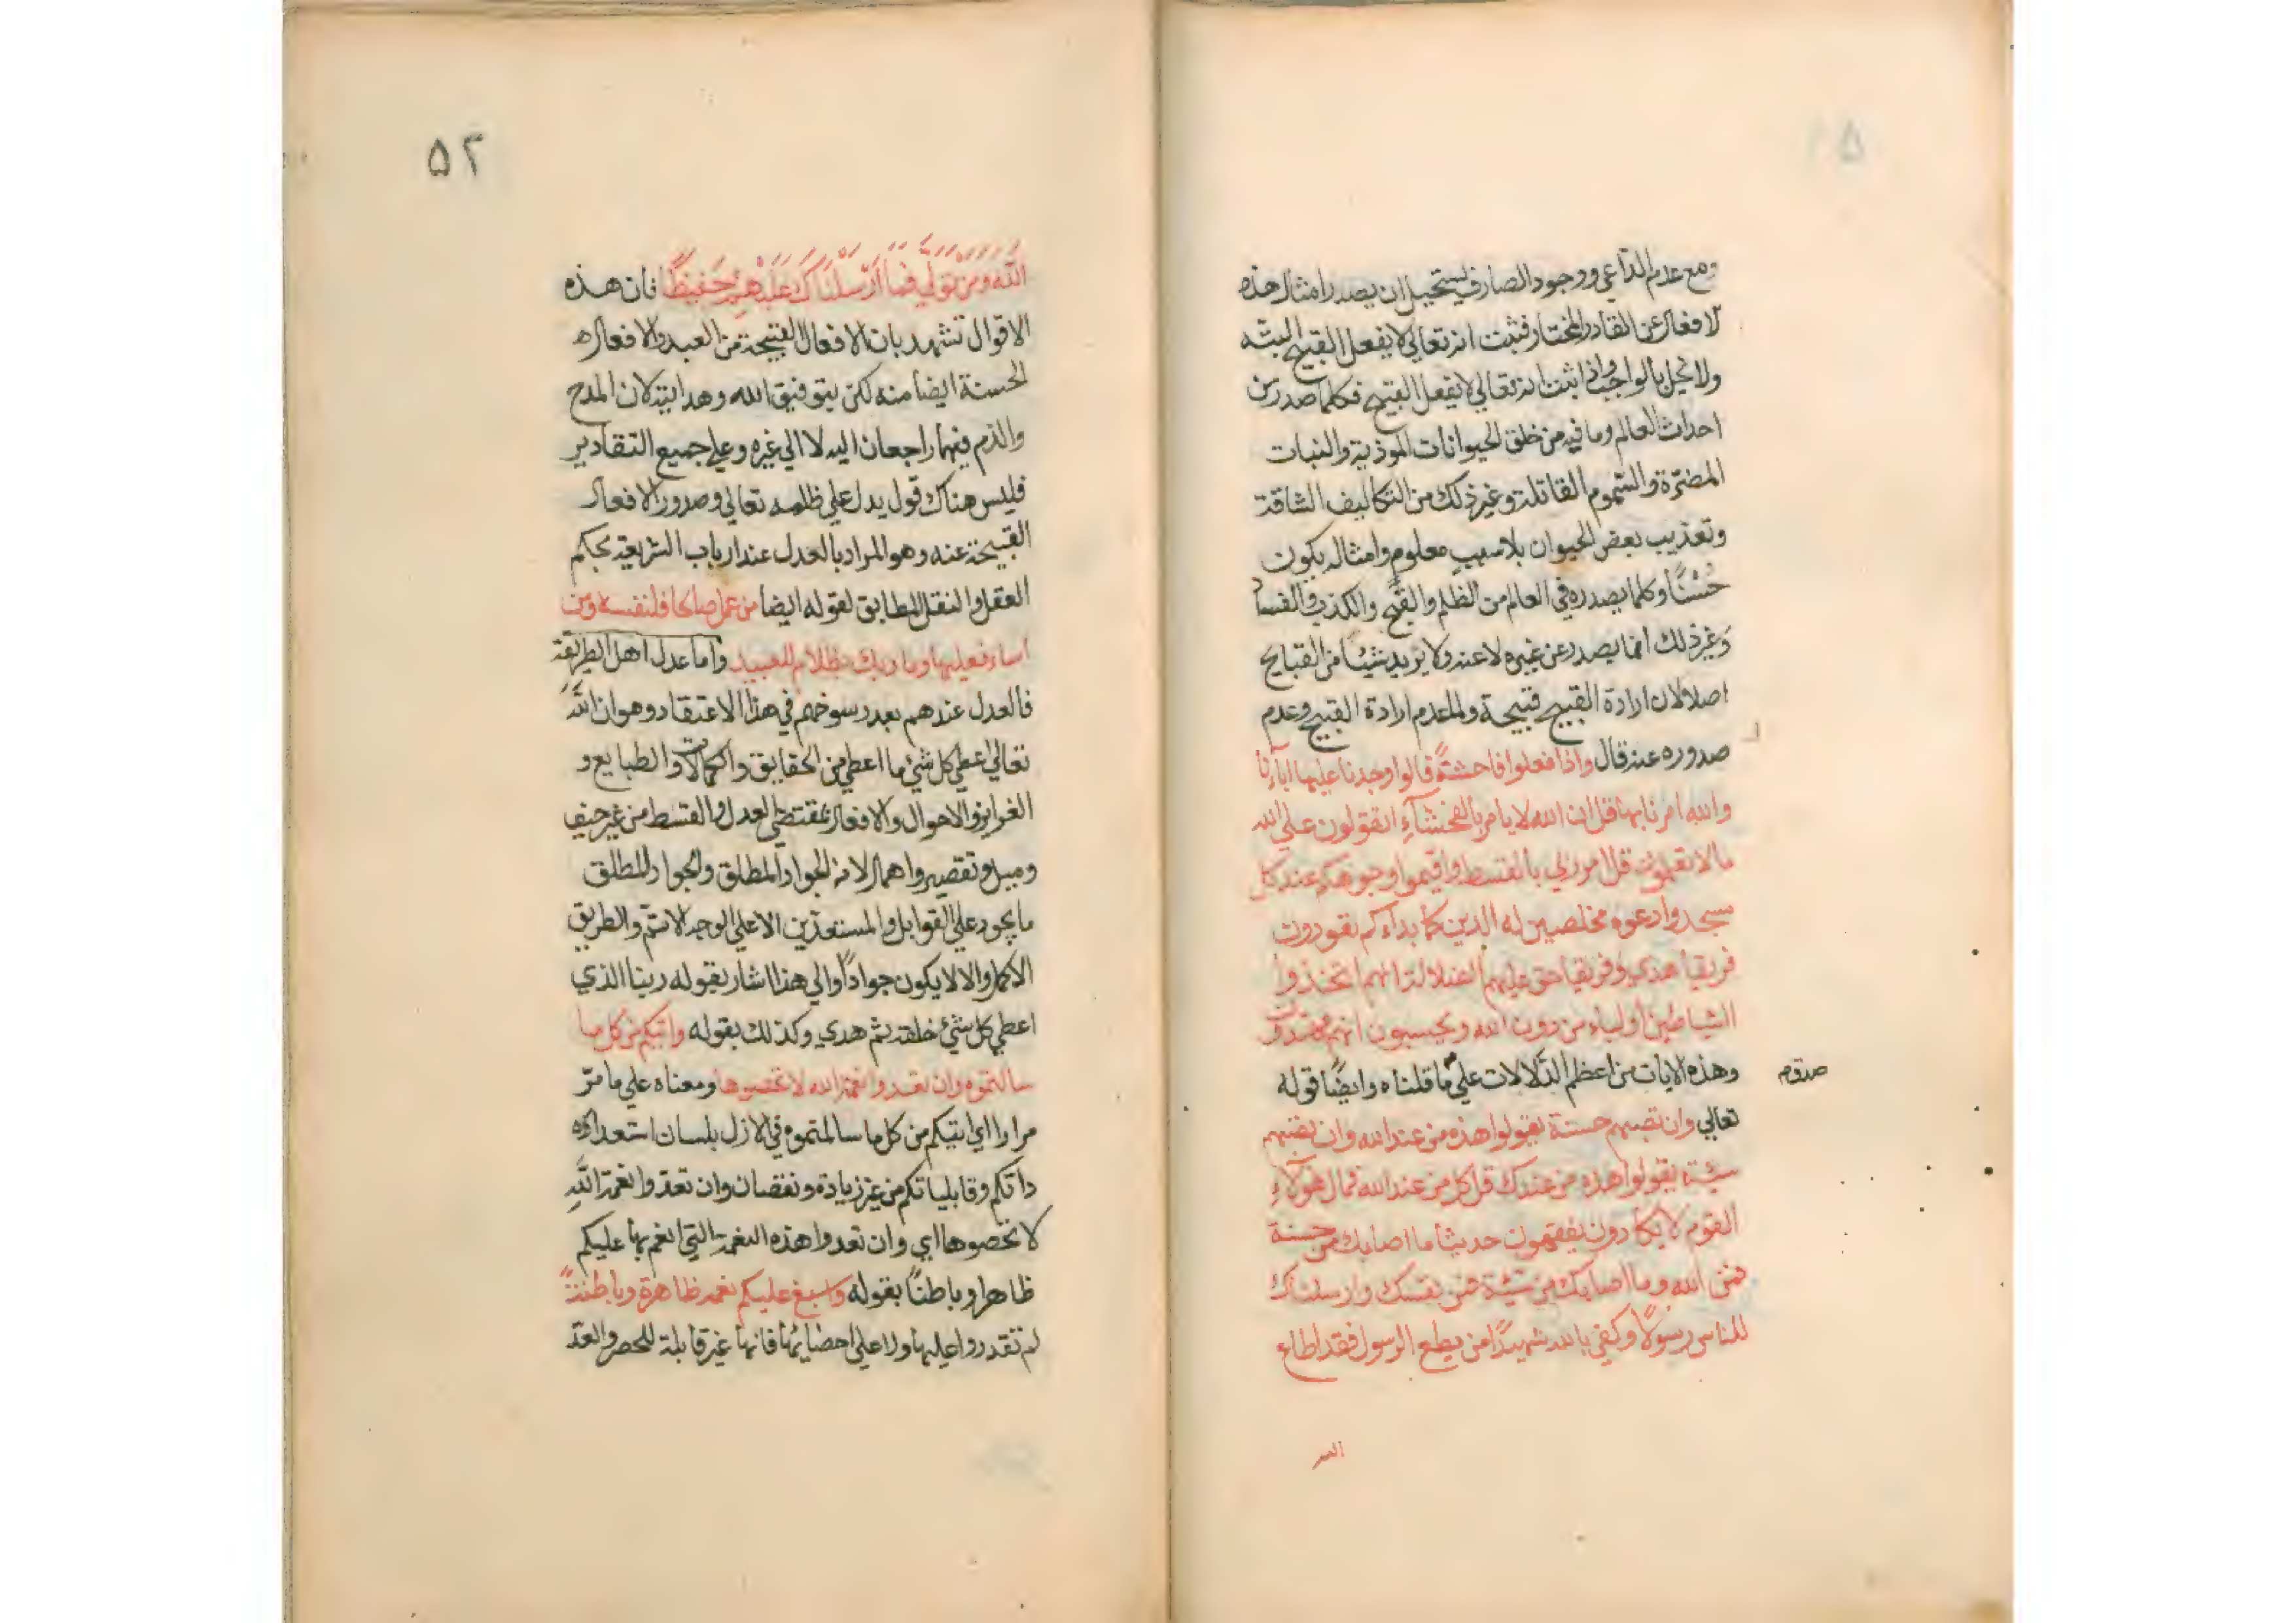 ومع عدم الداعي ووجود الصارف يستحيل ان يصدر امثال هذه
الافعال عن القادر المختار فثبت انه تعالي لا يفعل القبيح البته
ولا يخل بالواجب واذا ثبت انه تعالي لا يفعل القبيح فكلما صدر من
احداث العالم وما فيه من خلق الحيوانات الموذية والنبات
المضرّة والسّموم القاتلة وغير ذلك من التكاليف الشاقة
وتعذيب بعض الحيوان بلا سببٍ معلوم وامثاله يكون
حُسْنًا وكلما يصدر في العالم من الظلم والقبح والكذب والفساد
وغير ذلك انما يصدر عن غيره لا عنه ولا يريد شيئًا من القبايح
اصلا لان ارادة القبيح قبيحة ولعدم ارادة القبيح وعدم
صدوره عنه قال واذا فعلوا فاحشةً قالوا وجدنا عليها آباءنا
والله امرنا بها قل ان الله لا يامر بالفحشآءِ اتقولون علي الله
مالا تعلمون قل امر ربي بالقسط واقيموا وجوهكم عند كل
مسجد وادعوه مخلصين له الدين كما بداءكم تعودون
فريقا هدي وفريقا حق عليهم الضلالة انهم اتخذوا
الشياطين اولياء من دون الله ويحسبون انهم مهتدون
وهذه الايات من اعظم الدّلالات علي ما قلناه وايضًا قوله
تعالي وان تصبهم حسنة يقولوا هذه من عند الله وان تصبهم
سيّئة يقولوا هذه من عندك قل كل من عند الله فمال هؤلآءِ
القوم لا يكادون يفقهون حديثا ما اصابك من حسنة
فمن الله وما اصابك من سيّئة فمن نفسك وارسلناك
للناس رسولًا وكفي بالله شهيدًا من يطع الرسول فقد اطاع
۵۲
اللّهَ وَمَنْ تَوَلّي فَمَا اَرْسَلْنَاكَ عَلَيْهِمْ حَفِيظًا فان هذه
الاقوال تشهد بان الافعال القبيحة من العبد والافعال
الحسنة ايضا منه لكن بتوفيق الله وهدايته لان المدح
والذم فيهما راجعان اليه لا الي غيره وعلي جميع التقادير
فليس هناك قول يدل علي ظلمه تعالي وصدور الافعال
القبيحة عنه وهو المراد بالعدل عند ارباب الشريعة بحكم
العقل والنقل المطابق لقوله ايضا من عمل صالحا فلنفسه ومن
اساء فعليها وما ربك بظلام للعبيد واما عدل اهل الطريقة
فالعدل عندهم بعد رسوخهم في هذا الاعتقاد وهو ان اللّهَ
تعالي اعطي كل شيء ما اعطي من الحقايق والكمالات والطبايع و
الغرايز والاحوال والافعال بمقتضي العدل والقسط من غير حيف
وميل وتقصير واهمال لانه الجواد المطلق والجواد المطلق
ما يجود علي القوابل والمستعدّين الا علي الوجه الاتمّ والطريق
الاكمل والا لا يكون جوادًا والي هذا اشار بقوله ربنا الذي
اعطي كل شيء خلقه ثم هدي وكذلك بقوله واتيكم من كل ما
سالتموه وان تعدوا نعمة الله لا تحصوها ومعناه علي ما مرّ
مرارا اي اتيكم من كل ما سالتموه في الازل بلسان استعداد
ذاتكم وقابلياتكم من غير زيادة ونقصان وان تعدّوا نعمة اللّهِ
لا تحصوها اي وان تعدوا هذه النعمة التي انعم بها عليكم
ظاهرا وباطنًا بقوله واسبغ عليكم نعمه ظاهرة وباطنةً
لم تقدروا عليها ولا علي احصايها فانها غير قابلة للحصر والعدّ